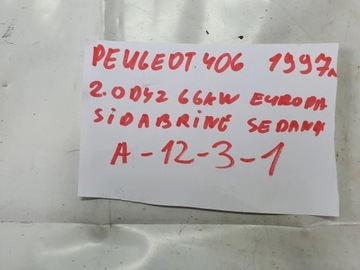 PEUGEOT 406 1997m
2.0DYZ 66KW EUROPA
SIDABRINĖ SEDANA
A-12-3-1